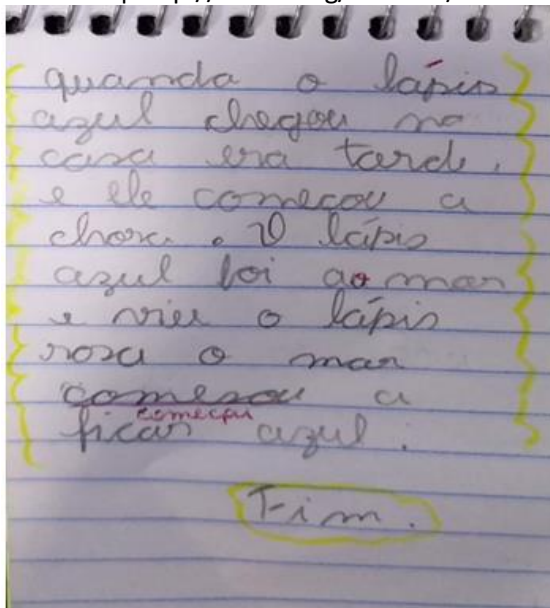 quanda o lápis
azul chegou na
casa era tarde,
e ele começou a
chora. O lápis
azul foi ao mar
e viu o lápis
rosa o mar
comesou a
começou
ficar azul.
Fim.